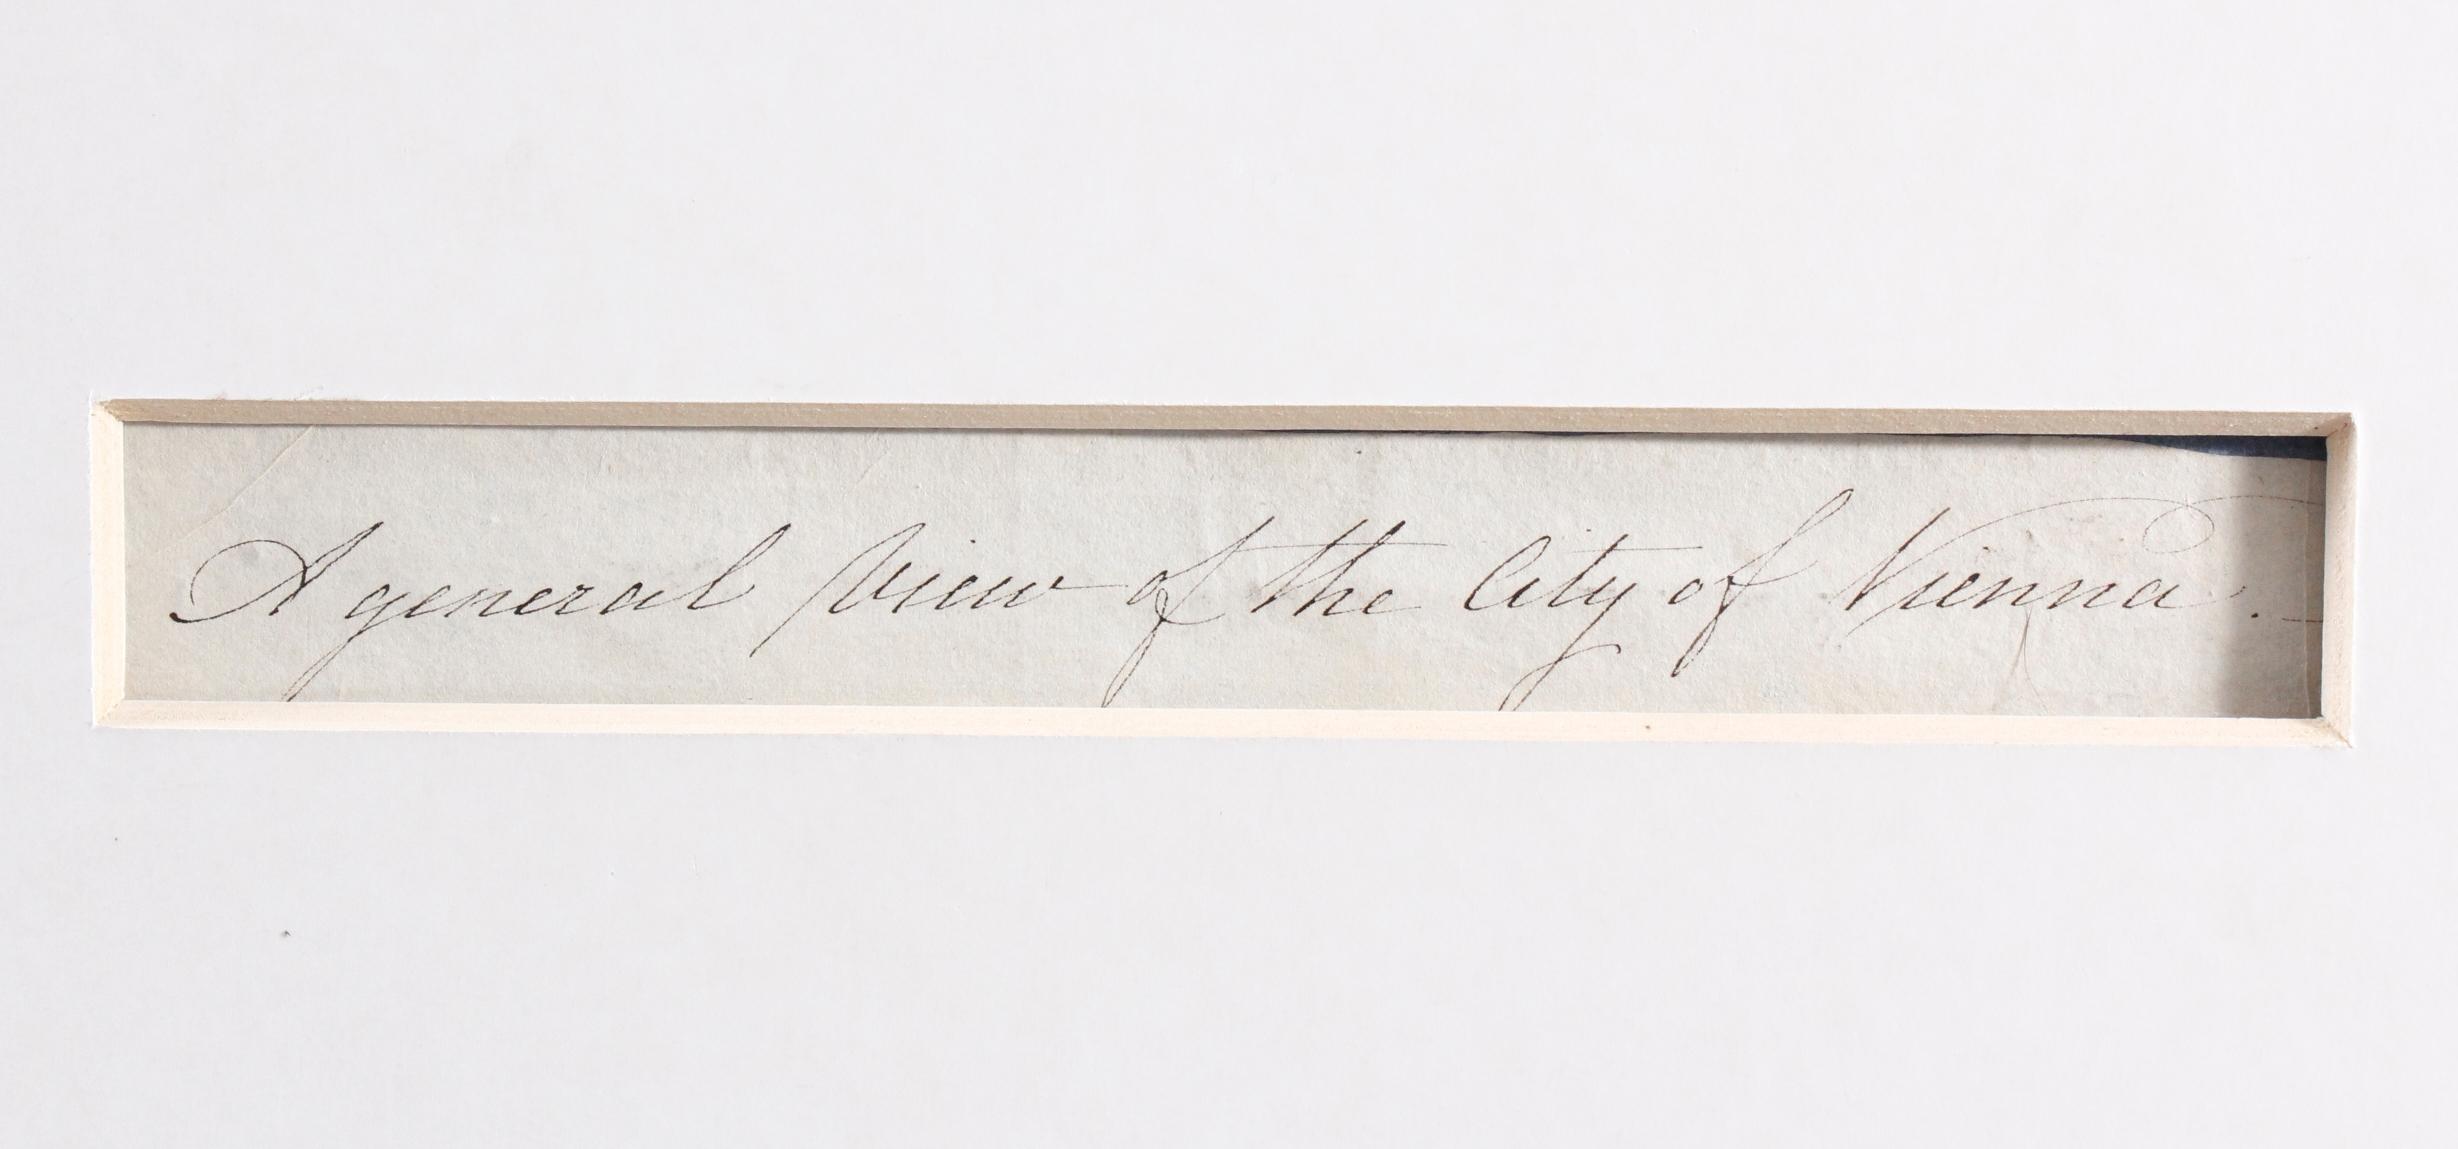 A general View of the City of Vienna.